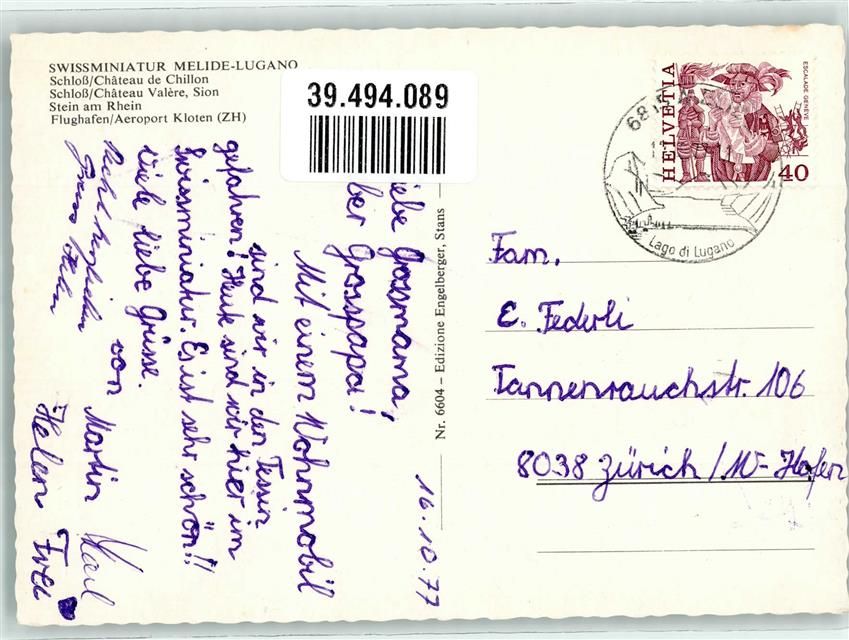 SWISSMINIATUR MELIDE-LUGANO
Schloß/Château de Chillon
Schloß/Château Valère, Sion
Stein am Rhein
Flughafen/Aeroport Kloten (ZH)
39.494.089
HELVETIA
ESCALADE GENÈVE
40
6815
Lago di Lugano
Nr. 6604 – Edizione Engelberger, Stans
16.10.77
iebe Grossmama,
ber Grosspapa!
Mit einem Wohnmobil
sind wir in den Tessin
gefahren! Heute sind wir hier im
Swissminiatur. Es ist sehr schön!!
Viele liebe Grüsse.
von Martin
Helen Fredi
Fam.
E. Federli
Tannenrauchstr. 106
8038 Zürich / W-Hofen